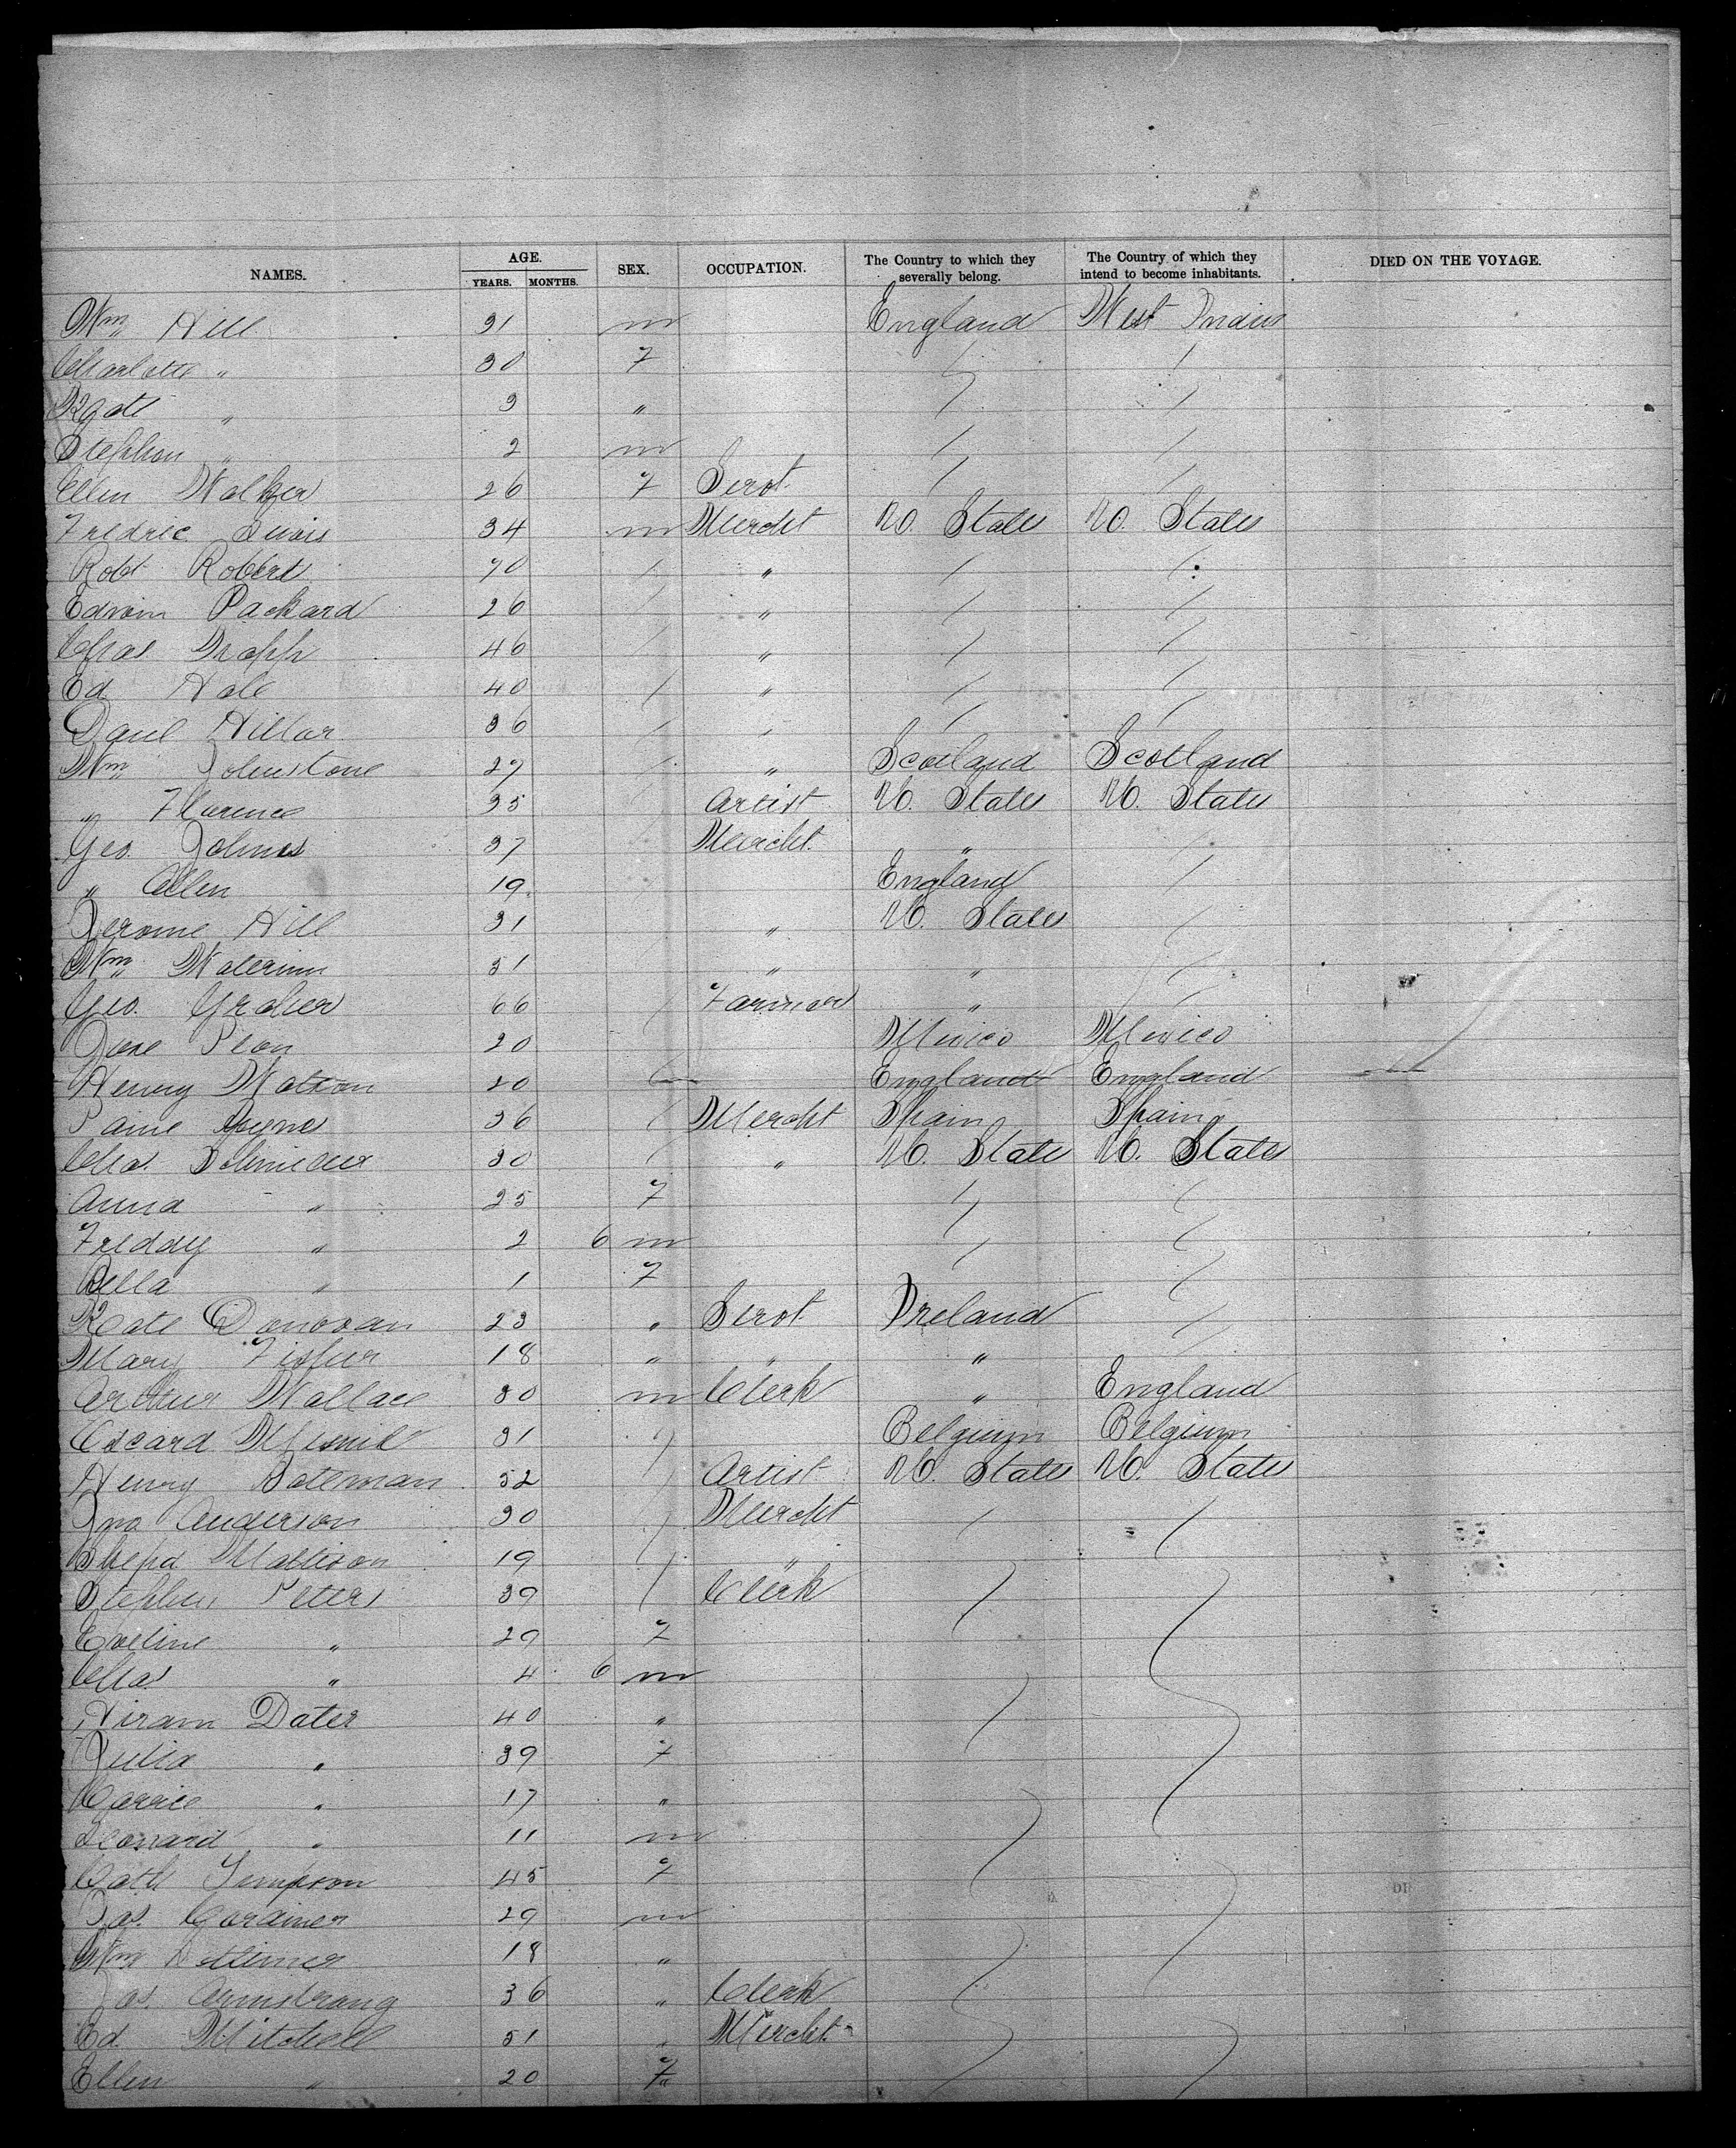 NAMES. AGE. YEARS. MONTHS. SEX. OCCUPATION. The Country to which they severally belong. The Country of which they intend to become inhabitants. DIED ON THE VOYAGE.
Wm Hill 31 m England West Indies
Charlotte " 30 F
Kate " 3 "
Stephen " 2 m
Ellen Walker 26 F Servt
Fredric Lewis 34 m Mercht U. States U. States
Robt Roberts 70 "
Edwin Packard 26 "
Chas Trapp 46 "
Ed Hale 40 "
Danl Hillar 36 "
Wm Johnstone 27 " Scotland Scotland
" Florence 35 Artist U. States U. States
Geo. 37 Mercht "
" Allen 19 England
Jerome Hill 31 " U. States
Wm 51 " "
Geo. 66 Farmer "
Jose 20 Mexico Mexico
Henry Watson 20 England England
36 Mercht Spain Spain
Chas. 30 " U. States U. States
Anna " 25 F
Freddy " 2 6 m
Bella " 1 F
Kate Donovan 23 " Servt Ireland
Mary Fisher 18 " " "
Arthur Wallace 30 m Clerk " England
31 Belgium Belgium
Henry Bateman 52 Artist U. States U. States
Jno Anderson 30 Mercht
Shepd Mattison 19 "
Stephen Peters 39 Clerk
Eveline " 29 F
Chas " 4 6 m
Hiram Dater 40 "
Julia " 39 F
Carrie " 17 "
Leonard " 11 m
Cath Timpson 45 F
Jas. Gardiner 29 m
Wm 18 "
Jas. Armstrong 36 " Clerk
Ed. Mitchell 51 " Mercht
Ellen " 20 F